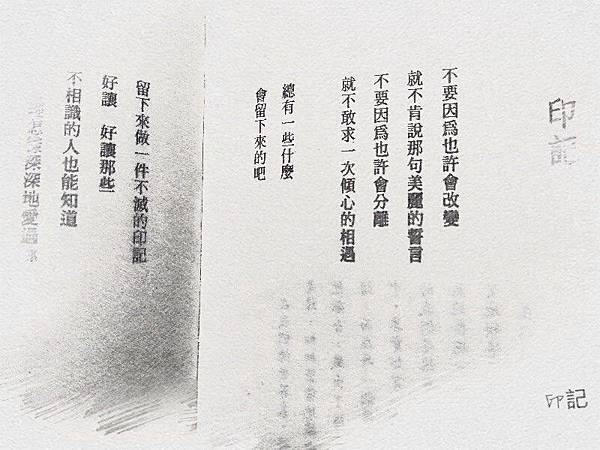 印記
不要因爲也許會改變
就不肯說那句美麗的誓言
不要因爲也許會分離
就不敢求一次傾心的相遇
總有一些什麼
會留下來的吧
留下來做一件不滅的印記
好讓　好讓那些
不相識的人也能知道
深深地愛過
印記